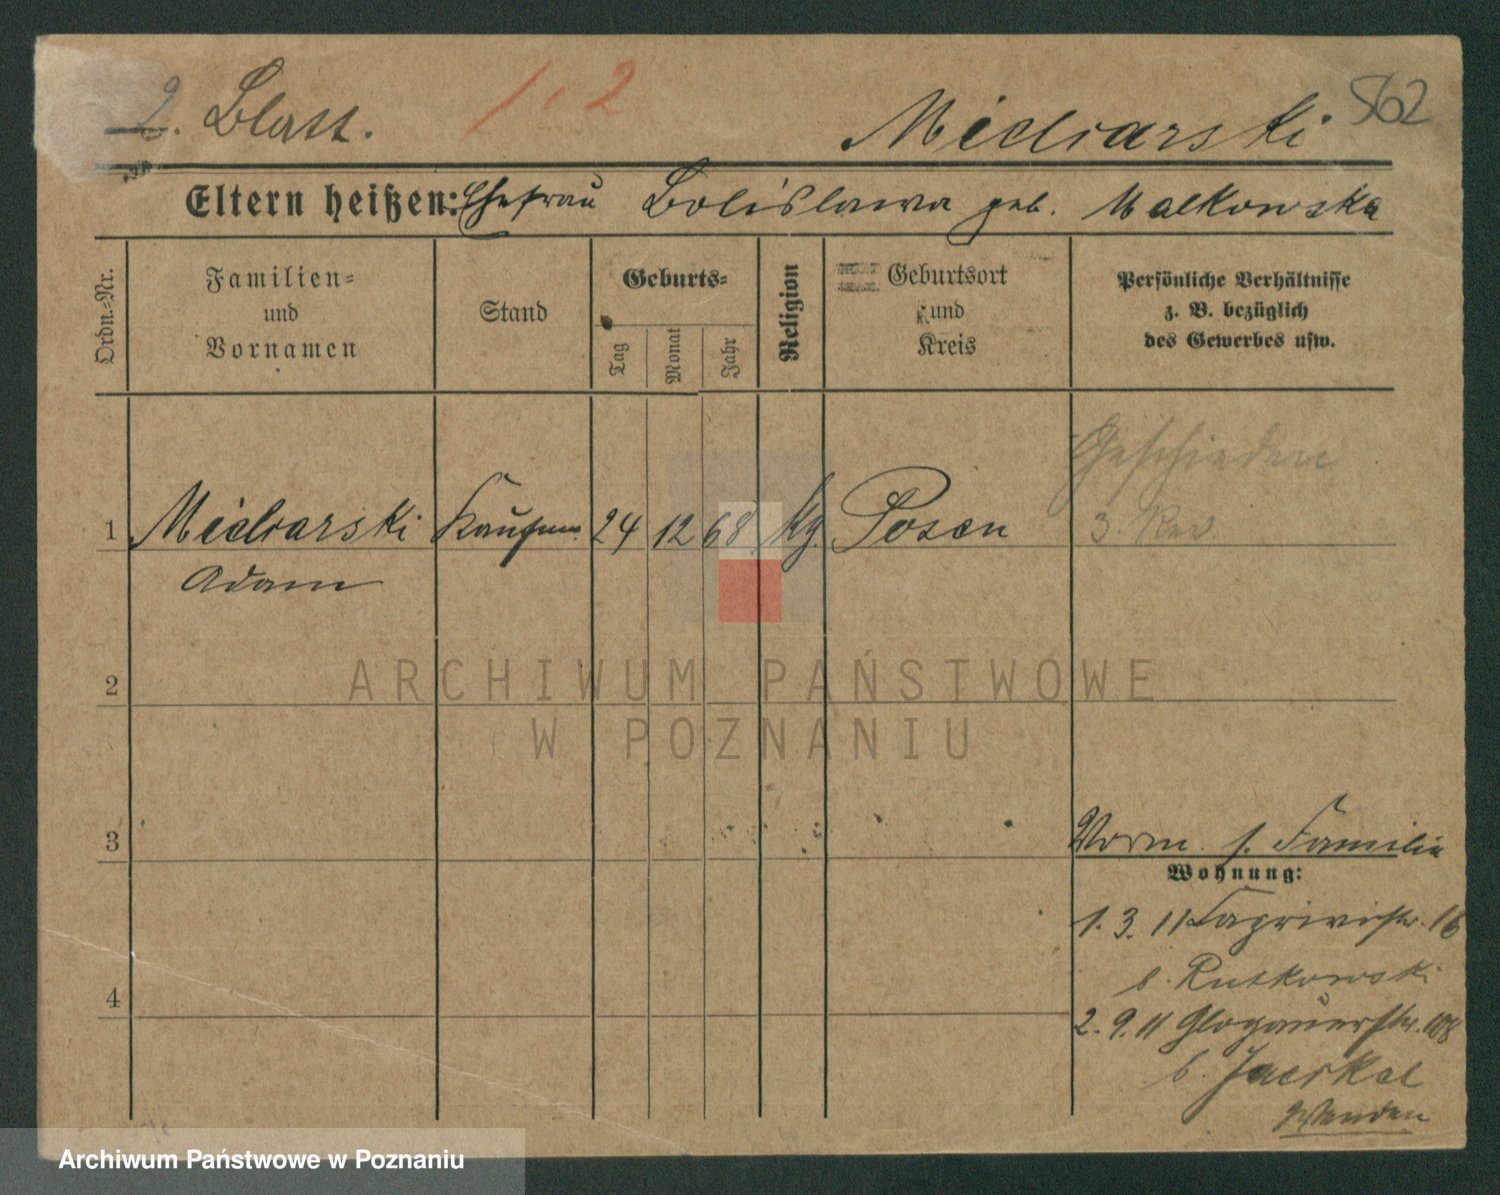 2. Blatt. 1,2 562
Eltern heißen: Ehefrau Bolislawa geb. Malkowska
Ordn.=Nr.
Familien=
und
Vornamen
Stand
Geburts=
Tag
Monat
Jahr
Religion
Geburtsort
und
Kreis
Persönliche Verhältnisse
z. B. bezüglich
des Gewerbes usw.
Geschieden
1 Kaufm. 24 12 68 Posen
Adam
2
3
Familie
Wohnung:
1. 3. 11 16
b. Rutkowski
2. 9. 11 Glogauerstr. 108
b.
Wenden
4
ARCHIWUM PAŃSTWOWE
W POZNANIU
Archiwum Państwowe w Poznaniu